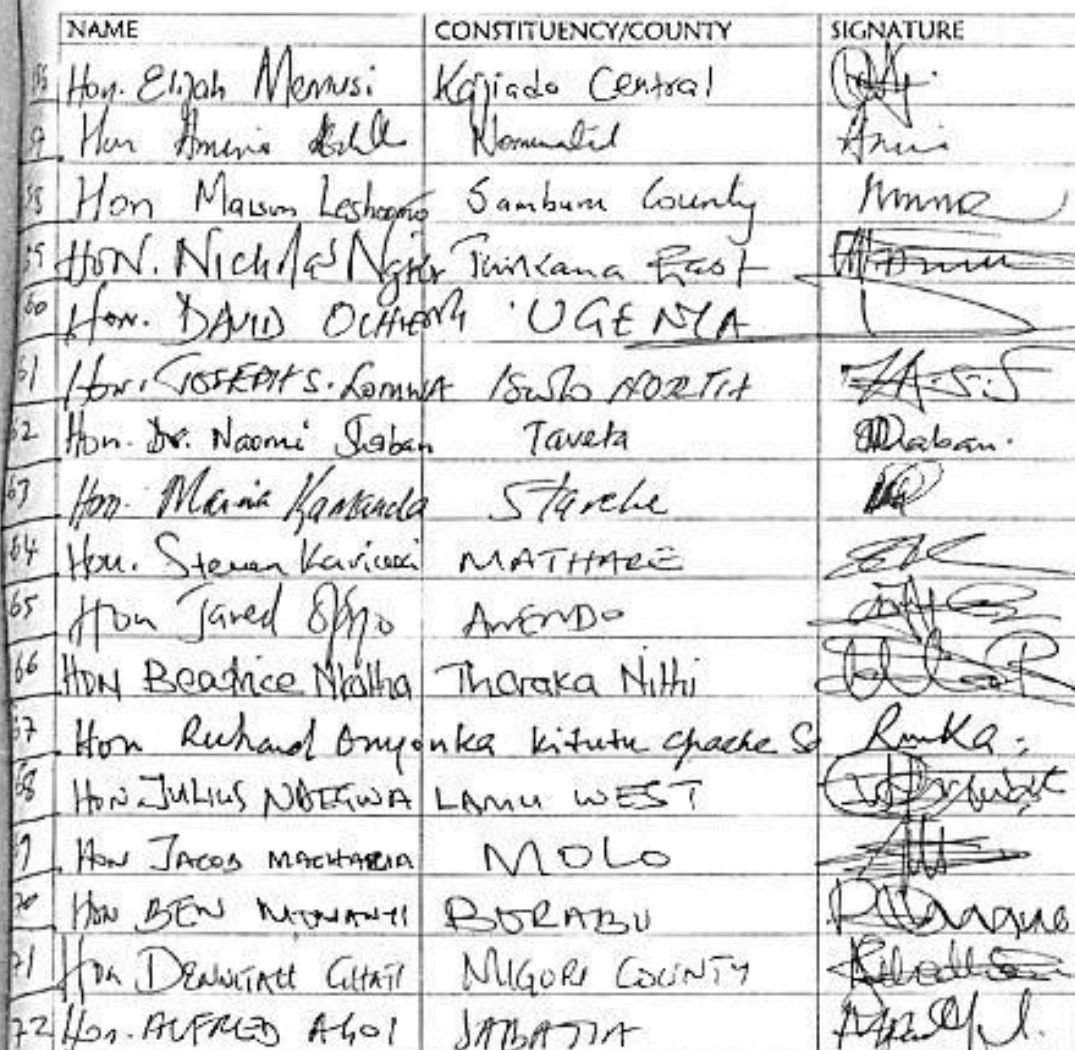 NAME CONSTITUENCY/COUNTY SIGNATURE
Hon. Elijah Memusi Kajiado Central
Hon Amina Nominated
58 Hon Maison Leshoomo Samburu County
59 HON. Nicholas Ngikor Turkana East
60 Hon. DAVID OCHIENG UGENYA
61 Hon. JOSEPH S. Isiolo NORTH
62 Hon. Dr. Naomi Shaban Taveta Shaban.
63 Hon. Maina Kamanda Starehe
64 Hon. Steven Kariuki MATHARE
65 Hon Jared Opiyo AWENDO
66 HON Beatrice Nkatha Tharaka Nithi
67 Hon Richard Onyonka Kitutu Chache So
68 HON JULIUS NDEGWA LAMU WEST
69 HON JACOB MACHARIA MOLO
70 HON BEN BORABU
71 Hon DENNITAH GHATI MIGORI COUNTY
72 Hon. ALFRED AGOI SABATIA